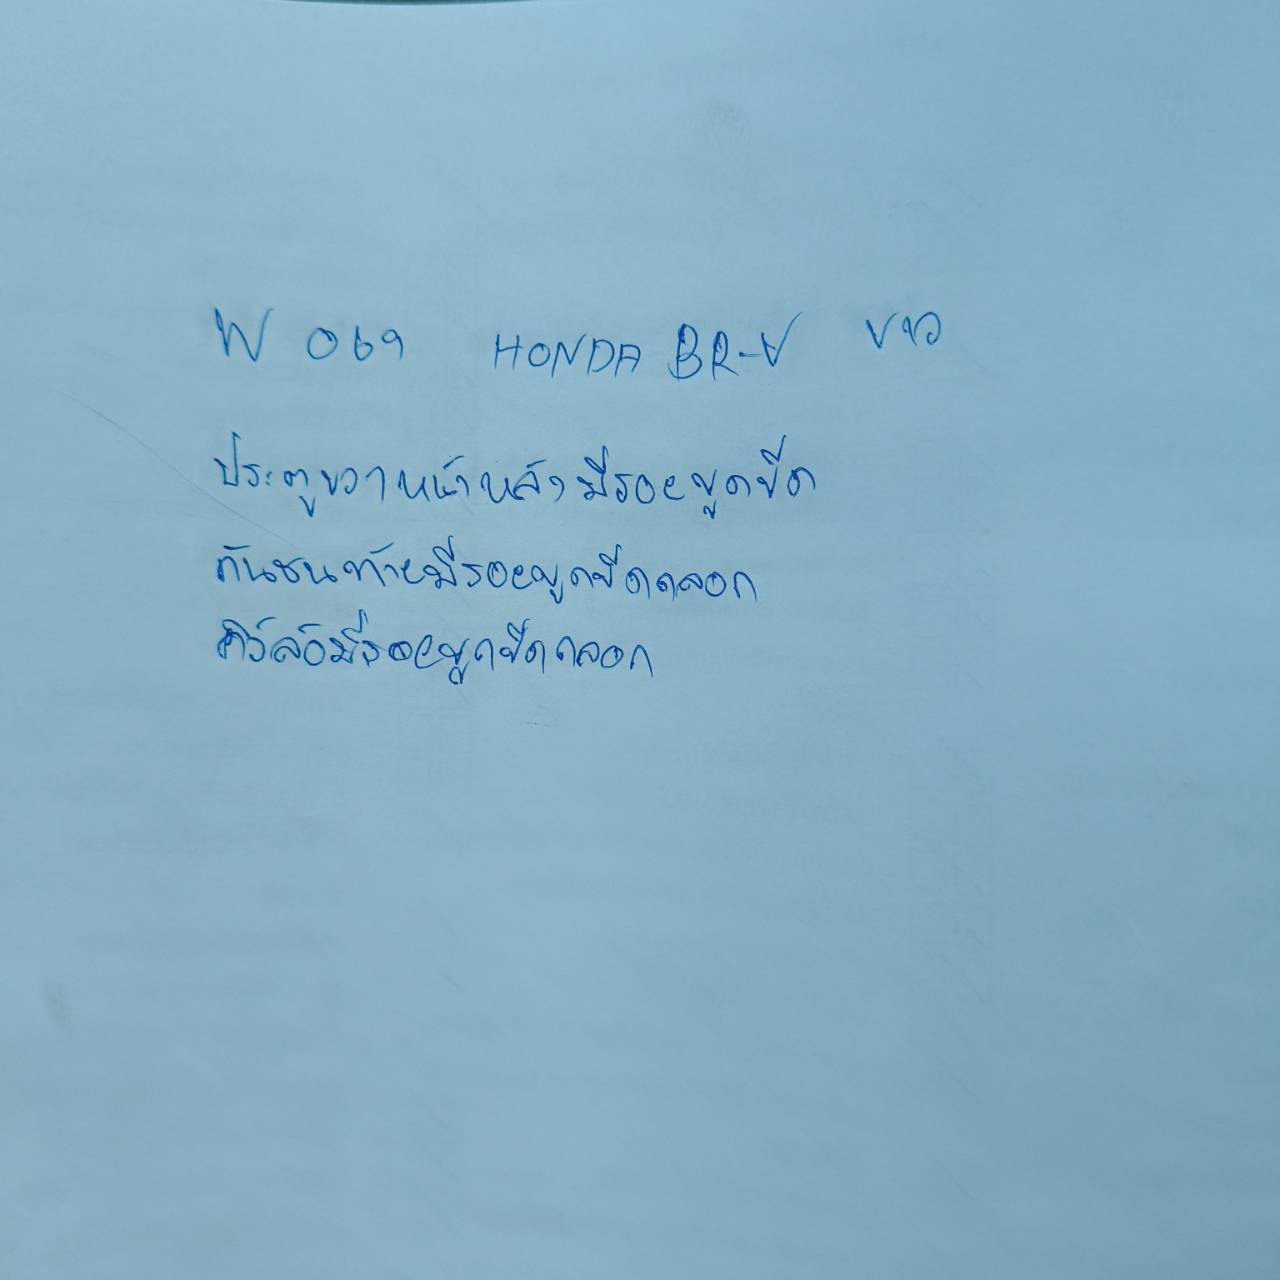 W 069 HONDA BR-V ขาว
ประตูขวาหน้าหลังมีรอยขูดขีด
กันชนท้ายมีรอยขูดขีดถลอก
คิ้วล้อมีรอยขูดขีดถลอก